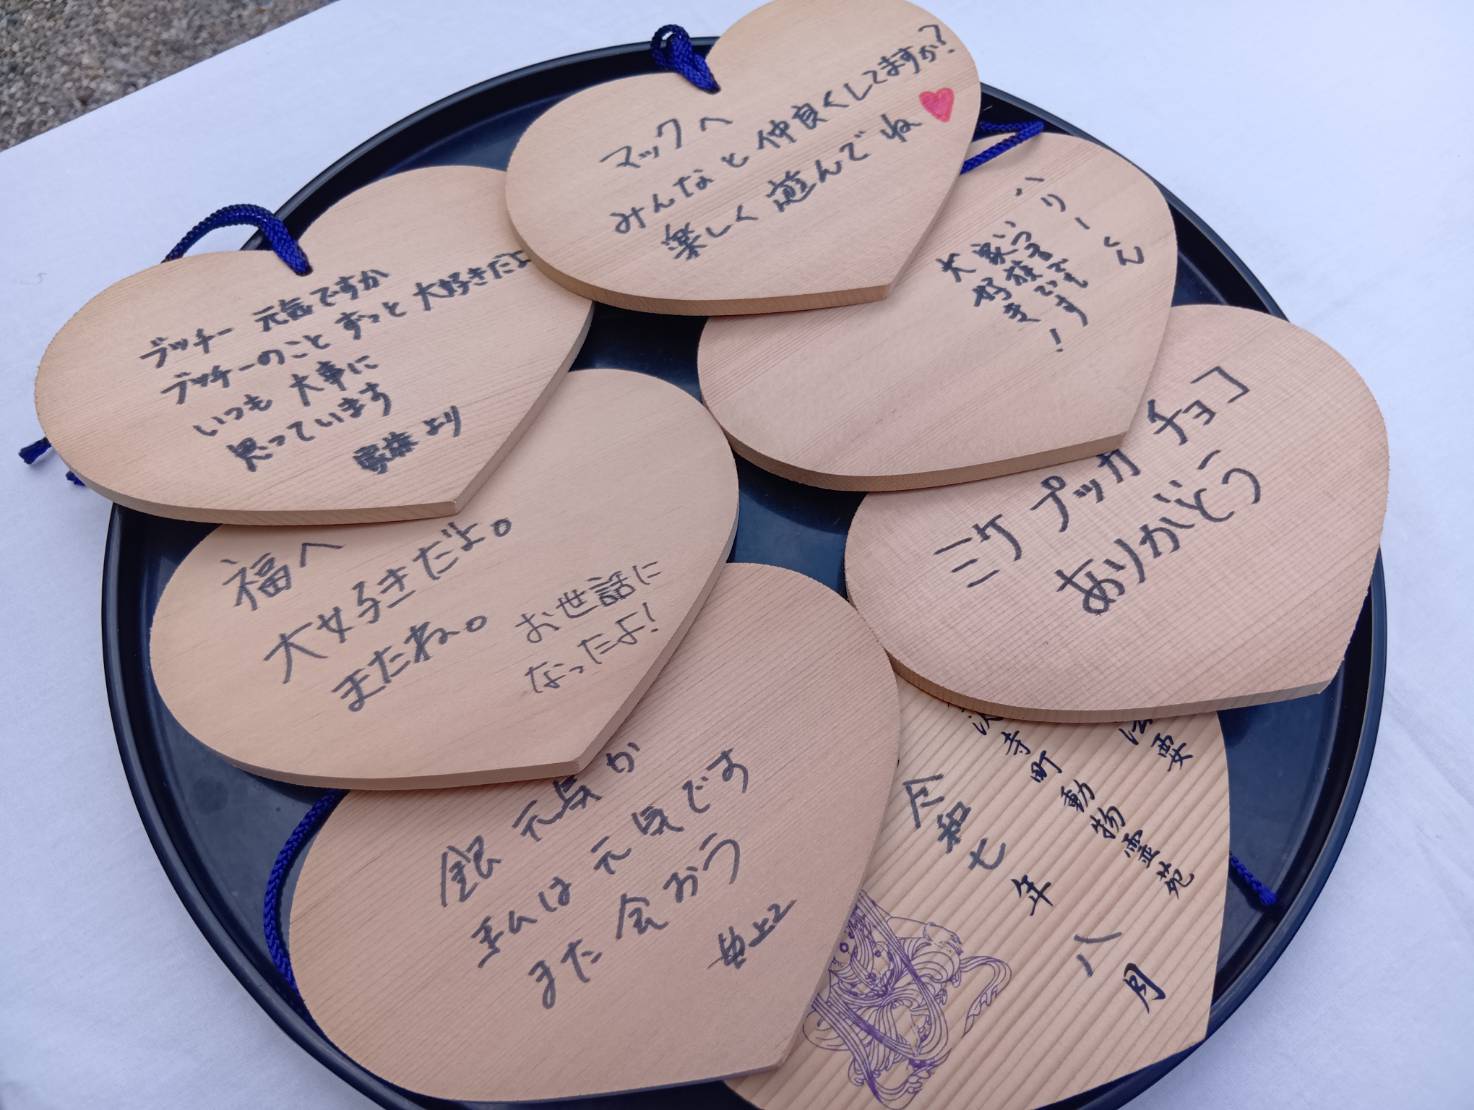 マックへ
みんなと仲良くしてますか?
楽しく遊んでね
ハリーくん
いつまでも
家族です!
大好き
ブッチー 元気ですか
ブッチーのこと ずっと 大好きだよ
いつも 大事に
思っています
家族より
ミケ プッカ チョコ
ありがどう
福へ
大好きだよ。
またね。
お世話に
なったよ!
銀 元気か
私は元気です
また会おう
井上
法要
寺町動物霊苑
令和七年 八月